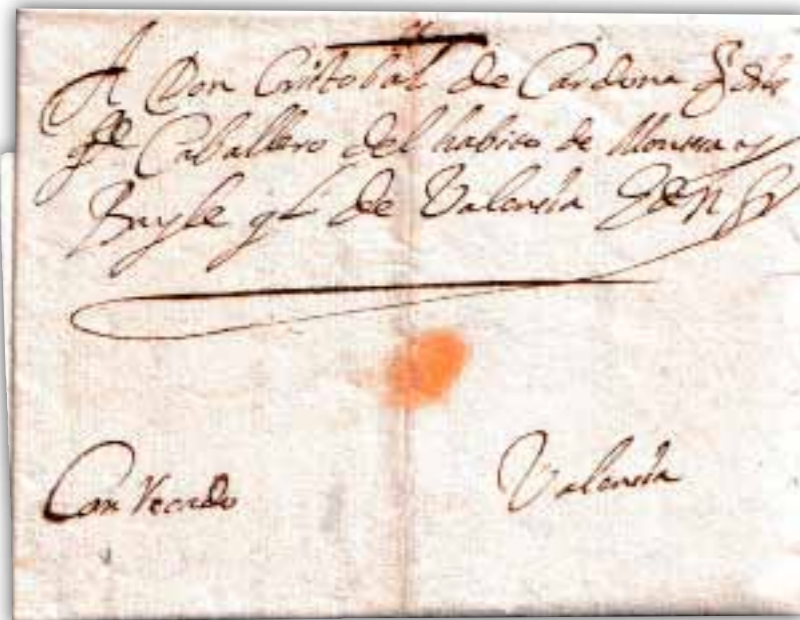 A Don Cristobal de Cardona
Caballero del habito de Montesa y
Bayle gl de Valencia
Con Recado
Valencia